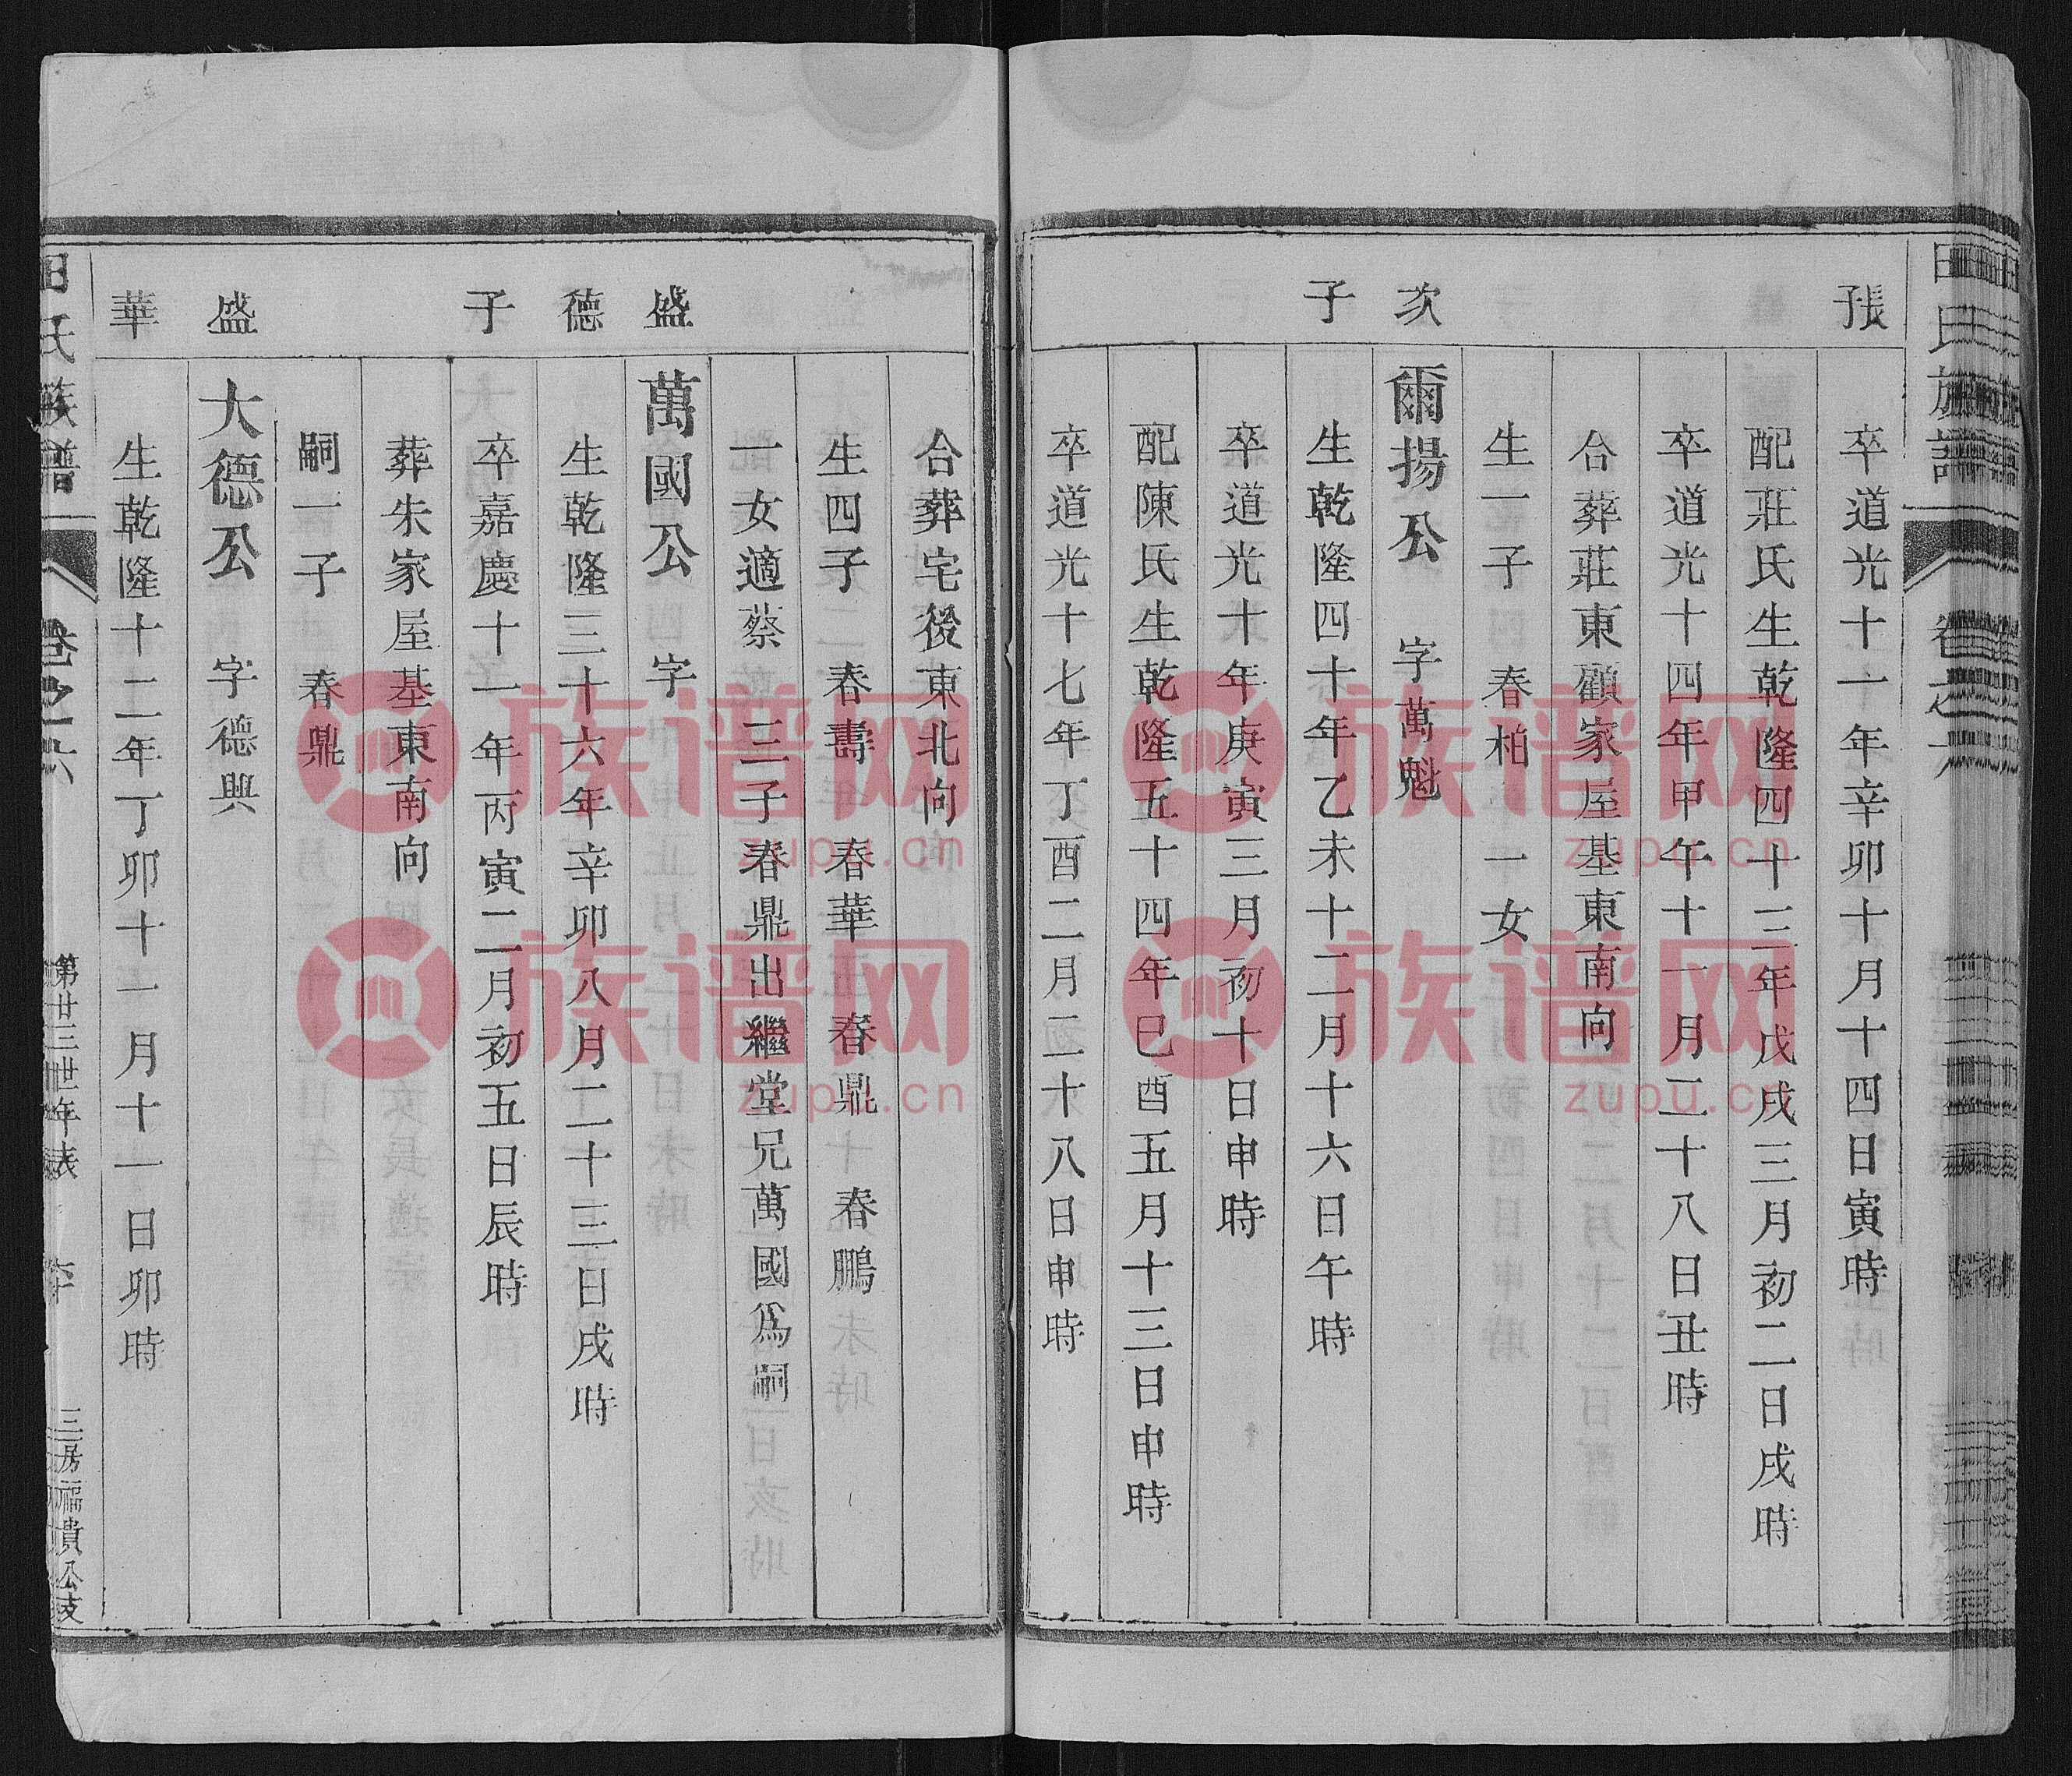 田氏族譜
卷之六
張
卒道光十一年辛卯十月十四日寅時
配莊氏生乾隆四十三年戊戌三月初二日戌時
卒道光十四年甲午十一月二十八日丑時
合葬莊東顧家屋基東南向
生一子 春柏 一女
次 爾揚公 字萬魁
子 生乾隆四十年乙未十二月十六日午時
卒道光十年庚寅三月初十日申時
配陳氏生乾隆五十四年己酉五月十三日申時
卒道光十七年丁酉二月二十八日申時
合葬宅後東北向
生四子 春壽 春華 春鼎 春鵬
一女適蔡 三子春鼎出繼堂兄萬國爲嗣
盛 萬國公 字
德 生乾隆三十六年辛卯八月二十三日戌時
子 卒嘉慶十一年丙寅二月初五日辰時
葬朱家屋基東南向
嗣一子 春鼎
盛 大德公 字德興
華 生乾隆十二年丁卯十一月十一日卯時
田氏族譜 卷之六 第廿三世年表 三房福貴公支
族谱网
zupu.cn
族谱网
zupu.cn
族谱网
zupu.cn
族谱网
zupu.cn